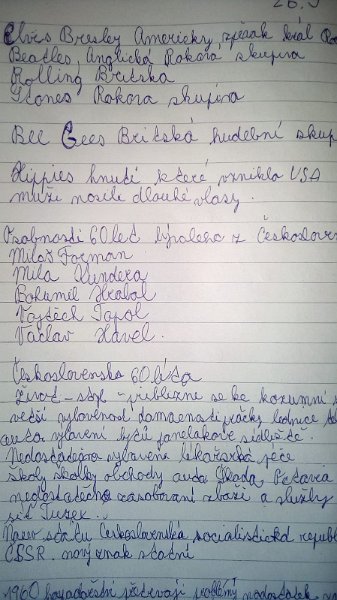 26.9
Elvis Bresley Americky zpěvák král Ro
Beatles Anglická Roková skupina
Rolling Britska
Stones Rokova skupina
Bee Gees Britská hudební skup
Hippies hnutí které vznikla USA
muži nosile dlouhé vlasy.
Osobnosti 60 let bývaleho z Českosloven
Miloš Forman
Mila Kundera
Bohumil Hrabal
Vojtěch Tapol
Václav Havel.
Československa 60 léta
život - styl - přiblizne se ke konzumní s
vetší vybovenost domacnosti pračky lednice te
auta vytavení bytů panelakove sidlište.
Nedostatečna vybavene lékařská péče
školy školky obchody auta Škoda
nedostatečno zasobování zbaží a služby
sit Tuzex.
Nazev státu Československa socialistická republ
ČSSR. nový znak státní
1960 hospodářství